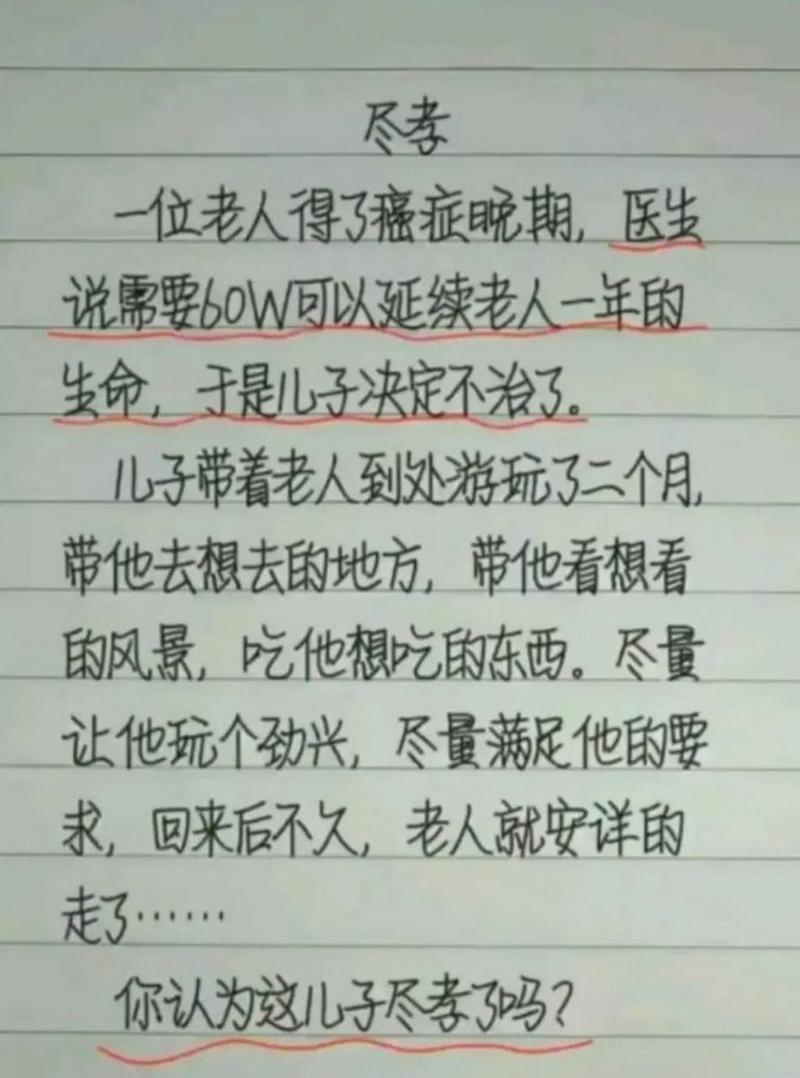 尽孝
一位老人得了癌症晚期，医生
说需要60W可以延续老人一年的
生命，于是儿子决定不治了。
儿子带着老人到处游玩了二个月，
带他去想去的地方，带他看想看
的风景，吃他想吃的东西。尽量
让他玩个劲兴，尽量满足他的要
求，回来后不久，老人就安详的
走了……
你认为这儿子尽孝了吗？